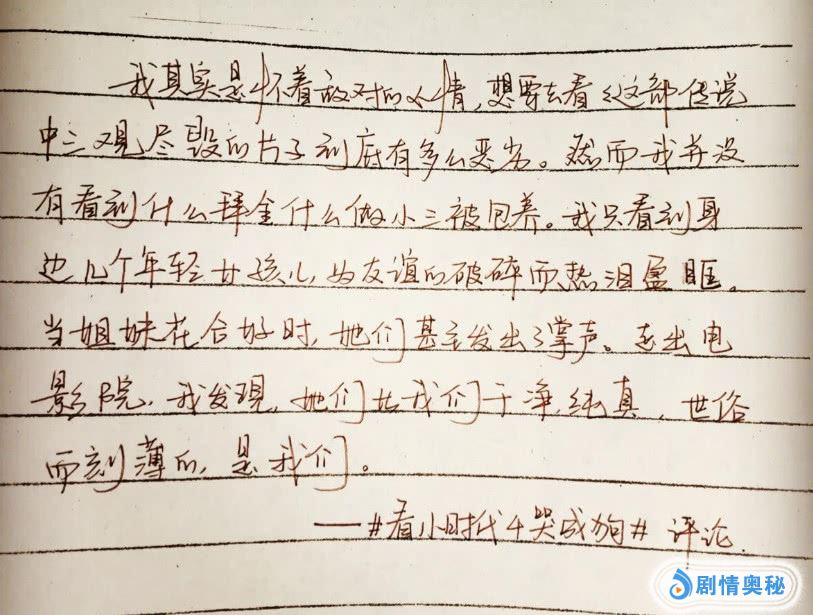 我其实是怀着敌对的心情,想要去看看这部传说
中三观尽毁的片子到底有多么恶劣。然而我并没
有看到什么拜金什么做小三被包养。我只看到身
边几个年轻女孩儿,为友谊的破碎而热泪盈眶。
当姐妹花合好时,她们甚至发出了掌声。走出电
影院,我发现,她们比我们干净纯真,世俗
而刻薄的,是我们。
——#看小时代4哭成狗# 评论.
剧情奥秘